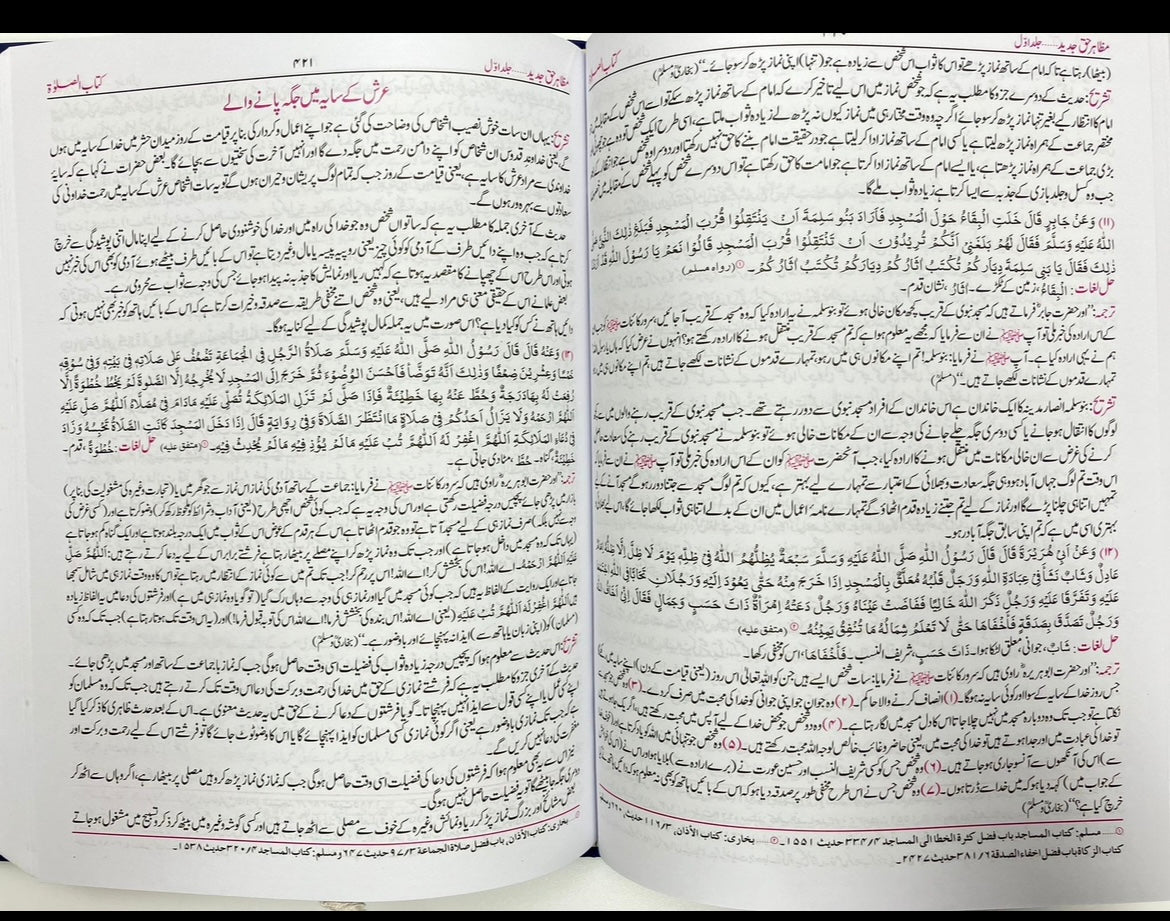 مظاہر حق جدید......جلد اوّل
کتاب الصلوٰۃ
(بیٹھا) رہتا ہے تا کہ امام کے ساتھ نماز پڑھے تو اس کا ثواب اس شخص سے زیادہ ہے جو (تنہا) اپنی نماز پڑھ کر سو جائے۔“ (بخاری و مسلم)
تشریح: حدیث کے دوسرے جزو کا مطلب یہ ہے کہ جو شخص نماز میں اس لیے تاخیر کرے کہ امام کے ساتھ نماز پڑھ سکے تو اسے اس شخص کے مقابلہ میں جو
امام کا انتظار کیے بغیر تنہا نماز پڑھ کر سو جائے اگرچہ وہ وقت مختار ہی میں نماز کیوں نہ پڑھ لے زیادہ ثواب ملتا ہے، اسی طرح ایک شخص تو وہ ہے جو
مختصر جماعت کے ہمراہ نماز پڑھ لیتا ہے یا کسی امام کے ساتھ نماز ادا کر لیتا ہے جو درحقیقت امام بننے کا حق نہیں رکھتا اور دوسرا وہ شخص ہے جو انتظار کے بعد
بڑی جماعت کے ہمراہ نماز پڑھتا ہے، یا ایسے امام کے ساتھ نماز ادا کرتا ہے جو امامت کا حق رکھتا ہے تو اس دوسرے شخص کو پہلے شخص کے مقابلہ میں
جب وہ کسل و جلد بازی کے جذبہ سے ایسا کرتا ہے زیادہ ثواب ملے گا۔
(۱۱) وَعَنْ جَابِرٍ قَالَ خَلَتِ الْبِقَاعُ حَوْلَ الْمَسْجِدِ فَأَرَادَ بَنُو سَلِمَةَ أَنْ يَنْتَقِلُوْا قُرْبَ الْمَسْجِدِ فَبَلَغَ ذٰلِكَ النَّبِيَّ صَلَّى
اللّٰهُ عَلَيْهِ وَسَلَّمَ فَقَالَ لَهُمْ بَلَغَنِيْ أَنَّكُمْ تُرِيْدُوْنَ أَنْ تَنْتَقِلُوْا قُرْبَ الْمَسْجِدِ قَالُوْا نَعَمْ يَا رَسُوْلَ اللّٰهِ قَدْ أَرَدْنَا
ذٰلِكَ فَقَالَ يَا بَنِيْ سَلِمَةَ دِيَارَكُمْ تُكْتَبْ اٰثَارُكُمْ دِيَارَكُمْ تُكْتَبْ اٰثَارُكُمْ۔ ① (رواہ مسلم)
حل لغات: اَلْبِقَاعُ، زمین کے ٹکڑے۔ اٰثَارٌ، نشان قدم۔
ترجمہ: ”اور حضرت جابرؓ فرماتے ہیں کہ مسجد نبوی کے قریب کچھ مکان خالی ہوئے تو بنو سلمہ نے یہ ارادہ کیا کہ وہ مسجد کے قریب آ جائیں، سرور کائنات ﷺ کو جب ان
کے اس ارادہ کی خبر ملی تو آپ ﷺ نے ان سے فرمایا کہ مجھے یہ معلوم ہوا ہے کہ تم مسجد کے قریب منتقل ہونے کا ارادہ رکھتے ہو؟ انہوں نے عرض کیا کہ ہاں یا رسول اللہ!
ہم نے یہی ارادہ کیا ہے۔ آپ ﷺ نے فرمایا: بنو سلمہ! تم اپنے مکانوں ہی میں رہو، تمہارے قدموں کے نشانات لکھے جاتے ہیں، تم اپنے مکانوں ہی میں رہو
تمہارے قدموں کے نشانات لکھے جاتے ہیں۔“ (مسلم)
تشریح: بنو سلمہ انصار مدینہ کا ایک خاندان ہے اس خاندان کے افراد مسجد نبوی سے دور رہتے تھے۔ جب مسجد نبوی کے قریب رہنے والوں میں سے
لوگوں کا انتقال ہو جانے یا کسی دوسری جگہ چلے جانے کی وجہ سے ان کے مکانات خالی ہوئے تو بنو سلمہ نے مسجد نبوی کے قریب رہنے کی سعادت حاصل
کرنے کی غرض سے ان خالی مکانات میں منتقل ہونے کا ارادہ کیا، جب آنحضرت ﷺ کو ان کے اس ارادہ کی خبر ملی تو آپ ﷺ نے ان سے فرمایا کہ
اس وقت تم لوگ جہاں آباد ہو وہی جگہ سعادت و بھلائی کے اعتبار سے تمہارے لیے بہتر ہے، کیوں کہ تم لوگ مسجد سے جتنا دور رہو گے مسجد آنے کے لیے
تمہیں اتنا ہی چلنا پڑے گا اور نماز کے لیے تم جتنے زیادہ قدم اٹھاؤ گے تمہارے نامۂ اعمال میں ان کے بدلے اتنا ہی ثواب لکھا جائے گا، اس لیے
بہتری اسی میں ہے کہ تم اپنی سابق جگہ آباد رہو۔
(۱۲) وَعَنْ أَبِيْ هُرَيْرَةَ قَالَ قَالَ رَسُوْلُ اللّٰهِ صَلَّى اللّٰهُ عَلَيْهِ وَسَلَّمَ سَبْعَةٌ يُظِلُّهُمُ اللّٰهُ فِيْ ظِلِّهٖ يَوْمَ لَا ظِلَّ إِلَّا ظِلُّهٗ إِمَامٌ
عَادِلٌ وَشَابٌّ نَشَأَ فِيْ عِبَادَةِ اللّٰهِ وَرَجُلٌ قَلْبُهٗ مُعَلَّقٌ بِالْمَسْجِدِ إِذَا خَرَجَ مِنْهُ حَتّٰى يَعُوْدَ إِلَيْهِ وَرَجُلَانِ تَحَابَّا فِي اللّٰهِ اجْتَمَعَا
عَلَيْهِ وَتَفَرَّقَا عَلَيْهِ وَرَجُلٌ ذَكَرَ اللّٰهَ خَالِيًا فَفَاضَتْ عَيْنَاهُ وَرَجُلٌ دَعَتْهُ اِمْرَأَةٌ ذَاتُ حَسَبٍ وَجَمَالٍ فَقَالَ إِنِّيْ أَخَافُ اللّٰهَ
وَرَجُلٌ تَصَدَّقَ بِصَدَقَةٍ فَأَخْفَاهَا حَتّٰى لَا تَعْلَمَ شِمَالُهٗ مَا تُنْفِقُ يَمِيْنُهٗ۔ ② (متفق علیہ)
حل لغات: شَابٌّ، جوانی، معلق لٹکا ہوا۔ ذَاتُ حَسَبٍ، شریف النسب۔ فَأَخْفَاهَا، اس کو مخفی رکھا۔
ترجمہ: ”اور حضرت ابوہریرہؓ راوی ہیں کہ سرور کائنات ﷺ نے فرمایا: سات شخص ایسے ہیں جن کو اللہ تعالیٰ اس روز (یعنی قیامت کے دن) اپنے سایہ میں رکھے گا
جس روز خدا کے سایہ کے سوا اور کوئی سایہ نہ ہو گا۔ (۱) انصاف کرنے والا حاکم۔ (۲) وہ جوان جو اپنی جوانی کو خدا کی محبت میں صرف کر دے۔ (۳) وہ شخص جو مسجد سے
نکلتا ہے تو جب تک وہ دوبارہ مسجد میں نہیں چلا جاتا اس کا دل مسجد میں لگا رہتا ہے۔ (۴) وہ دو شخص جو محض خدا کے لیے آپس میں محبت رکھتے ہیں، اگر یکجا ہوتے ہیں
تو خدا کی عبادت میں اور جدا ہوتے ہیں تو خدا کی محبت میں، یعنی حاضر و غائب خالص لوجہ اللہ محبت رکھتے ہیں۔ (۵) وہ شخص جو تنہائی میں اللہ کو یاد کرتا ہے اور (خوف خدا
سے) اس کی آنکھوں سے آنسو جاری ہو جاتے ہیں۔ (۶) وہ شخص جس کو کسی شریف النسب اور حسین عورت نے (برے ارادہ سے) بلایا ہو اور اس نے (اس کی خواہش
کے جواب میں) کہہ دیا ہو کہ میں خدا سے ڈرتا ہوں۔ (۷) وہ شخص جس نے اس طرح مخفی طور پر صدقہ دیا ہو کہ اس کے بائیں ہاتھ کو بھی نہ معلوم ہو کہ دائیں ہاتھ نے کیا
خرچ کیا ہے؟“ (بخاری و مسلم)
①...... مسلم: کتاب المساجد باب فضل کثرة الخطا الی المساجد ۴/ ۳۳۴ حدیث ۱۵۵۱۔ ②...... بخاری: کتاب الأذان، ۳/ ۱۱۶ حدیث ۶۶۰، ومسلم
کتاب الزکاة باب فضل اخفاء الصدقة ۶/ ۳۸۱ حدیث ۲۴۲۷۔
مظاہر حق جدید......جلد اوّل
۴۲۱
کتاب الصلوٰۃ
عرش کے سایہ میں جگہ پانے والے
تشریح: یہاں ان سات خوش نصیب اشخاص کی وضاحت کی گئی ہے جو اپنے اعمال و کردار کی بنا پر قیامت کے روز میدان حشر میں خدا کے سایہ میں ہوں
گے، یعنی خداوند قدوس ان اشخاص کو اپنے دامن رحمت میں جگہ دے گا اور انہیں آخرت کی سختیوں سے بچائے گا۔ بعض حضرات نے کہا ہے کہ سایۂ
خداوندی سے مراد عرش کا سایہ ہے، یعنی قیامت کے روز جب کہ تمام لوگ پریشان و حیران ہوں گے تو یہ سات اشخاص عرش کے سایہ میں رحمت خداوندی کی
سعادتوں سے بہرہ ور ہوں گے۔
حدیث کے آخری جملہ کا مطلب یہ ہے کہ ساتواں شخص وہ جو خدا کی راہ میں اور خدا کی خوشنودی حاصل کرنے کے لیے اپنا مال اتنی پوشیدگی سے خرچ
کرتا ہے کہ جب وہ اپنے دائیں طرف کے آدمی کو کوئی چیز یعنی روپیہ پیسہ یا مال وغیرہ دیتا ہے تو اس کے بائیں طرف بیٹھے ہوئے آدمی کو بھی اس کی خبر نہیں
ہوتی اور اس طرح اس کے چھپانے کا مقصد یہ ہوتا ہے کہ کہیں ریا اور نمائش کا جذبہ نہ پیدا ہو جائے جس کی وجہ سے ثواب سے محرومی رہے۔
بعض علما نے اس کے حقیقی معنی ہی مراد لیے ہیں، یعنی وہ شخص اتنے مخفی طریقہ سے صدقہ و خیرات کرتا ہے کہ اس کے بائیں ہاتھ کو خبر بھی نہیں ہوتی کہ
دائیں ہاتھ نے کس کو کیا دیا ہے؟ اس صورت میں یہ جملہ کمال پوشیدگی کے لیے کنایہ ہو گا۔
(۱۳) وَعَنْهُ قَالَ قَالَ رَسُوْلُ اللّٰهِ صَلَّى اللّٰهُ عَلَيْهِ وَسَلَّمَ صَلَاةُ الرَّجُلِ فِي الْجَمَاعَةِ تُضَعَّفُ عَلٰى صَلَاتِهٖ فِيْ بَيْتِهٖ وَفِيْ سُوْقِهٖ
خَمْسًا وَعِشْرِيْنَ ضِعْفًا وَذٰلِكَ أَنَّهٗ تَوَضَّأَ فَأَحْسَنَ الْوُضُوْءَ ثُمَّ خَرَجَ إِلَى الْمَسْجِدِ لَا يُخْرِجُهٗ إِلَّا الصَّلٰوةُ لَمْ يَخْطُ خُطْوَةً إِلَّا
رُفِعَتْ لَهٗ بِهَا دَرَجَةٌ وَحُطَّ عَنْهُ بِهَا خَطِيْئَةٌ فَإِذَا صَلّٰى لَمْ تَزَلِ الْمَلَائِكَةُ تُصَلِّيْ عَلَيْهِ مَادَامَ فِيْ مُصَلَّاهُ اَللّٰهُمَّ صَلِّ عَلَيْهِ
اَللّٰهُمَّ ارْحَمْهُ وَلَا يَزَالُ أَحَدُكُمْ فِيْ صَلَاةٍ مَا انْتَظَرَ الصَّلَاةَ وَفِيْ رِوَايَةٍ قَالَ إِذَا دَخَلَ الْمَسْجِدَ كَانَتِ الصَّلَاةُ تَحْبِسُهٗ وَزَادَ
فِيْ دُعَاءِ الْمَلَائِكَةِ اَللّٰهُمَّ اغْفِرْ لَهٗ اَللّٰهُمَّ تُبْ عَلَيْهِ مَا لَمْ يُؤْذِ فِيْهِ مَا لَمْ يُحْدِثْ فِيْهِ۔ ① (متفق علیہ) حل لغات: خُطْوَةٌ، قدم۔
خَطِيْئَةٌ، گناہ۔ حُطَّ، مٹا دی جاتی ہے۔
ترجمہ: ”اور حضرت ابوہریرہؓ راوی ہیں کہ سرور کائنات ﷺ نے فرمایا: جماعت کے ساتھ آدمی کی نماز اس نماز سے جو گھر میں یا (تجارت وغیرہ کی مشغولیت کی بنا پر)
بازار میں پڑھی جائے پچیس درجہ فضیلت رکھتی ہے اور اس کی وجہ یہ ہے کہ جب کوئی شخص اچھی طرح (یعنی آداب و شرائط کو ملحوظ رکھ کر) وضو کرتا ہے اور (کسی غرض کی
وجہ سے نہیں بلکہ) صرف نماز ہی کے لیے مسجد آتا ہے تو وہ جو قدم اٹھاتا ہے اس کے ہر قدم کے عوض اس کے ثواب میں ایک درجہ بلند ہوتا ہے اور ایک گناہ کم ہو جاتا ہے
(یہاں تک کہ وہ مسجد میں داخل ہو جاتا ہے) اور جب تک وہ نماز پڑھ کر اپنے مصلے پر بیٹھا رہتا ہے فرشتے برابر اس کے لیے یہ دعا کرتے رہتے ہیں: اَللّٰهُمَّ صَلِّ
عَلَيْهِ اَللّٰهُمَّ ارْحَمْهُ، اے اللہ! اس کی بخشش کر! اے اللہ! اس پر رحم کر! جب تک تم میں سے کوئی نماز کے انتظار میں رہتا ہے تو اس کا وہ وقت نماز ہی میں شامل سمجھا
جاتا ہے اور ایک روایت کے الفاظ یہ ہیں کہ جب کوئی مسجد میں گیا اور نماز ہی کی وجہ سے وہاں رک گیا (تو گویا وہ نماز ہی میں ہے) اور فرشتوں کی دعا میں یہ الفاظ زیادہ
ہیں اَللّٰهُمَّ اغْفِرْ لَهٗ اَللّٰهُمَّ تُبْ عَلَيْهِ (یعنی اے اللہ! اس بندہ کی بخشش فرما! اے اللہ! اس کی توبہ قبول فرما!) اور (یہ اس وقت تک ہوتا رہتا ہے) جب تک کہ وہ کسی
(مسلمان) کو (اپنی زبان یا ہاتھ سے) ایذا نہ پہنچائے اور باوضو رہے۔“ (بخاری و مسلم)
تشریح: اس حدیث سے معلوم ہوا کہ پچیس درجہ زیادہ ثواب کی فضیلت اسی وقت حاصل ہو گی جب کہ نماز باجماعت کے ساتھ اور مسجد میں پڑھی جائے۔
حدیث کے آخری جزو کا مطلب یہ ہے کہ فرشتے نمازی کے حق میں خدا کی رحمت و برکت کی دعا اس وقت تک کرتے رہتے ہیں جب تک کہ وہ مسلمان کو
اپنے کسی عمل یا اپنے کسی قول سے ایذا نہیں پہنچاتا۔ گویا فرشتوں کے دعا کرنے کے حق میں یہ حدیث معنوی ہے۔ اس کے بعد حدث ظاہری کا ذکر کیا گیا
ہے کہ جب تک نمازی باوضو رہتا ہے، یعنی اگر کوئی نمازی کسی مسلمان کو ایذا پہنچائے گا یا اس کا وضو ٹوٹ جائے گا تو فرشتے اس کے لیے رحمت و برکت اور
مغفرت کی دعا نہیں کریں گے۔
نیز اس سے یہ بھی معلوم ہوا کہ فرشتوں کی دعا کی فضیلت اسی وقت حاصل ہو گی جب کہ نمازی نماز پڑھ کر وہیں مصلی پر بیٹھا رہے، اگر وہاں سے اٹھ کر
دوسری جگہ جا بیٹھے گا تو یہ فضیلت حاصل نہیں ہو گی۔
بعض مشائخ اور بزرگ نماز پڑھ کر ریا و نمائش وغیرہ کے خوف سے مصلی سے اٹھ جاتے ہیں اور کسی گوشہ وغیرہ میں بیٹھ کر ذکر و تسبیح میں مشغول ہو جاتے
①...... بخاری: کتاب الأذان، باب فضل صلاة الجماعة ۳/ ۹۷ حدیث ۶۴۷ ومسلم: کتاب المساجد ۴/ ۳۲۰ حدیث ۱۵۳۸۔